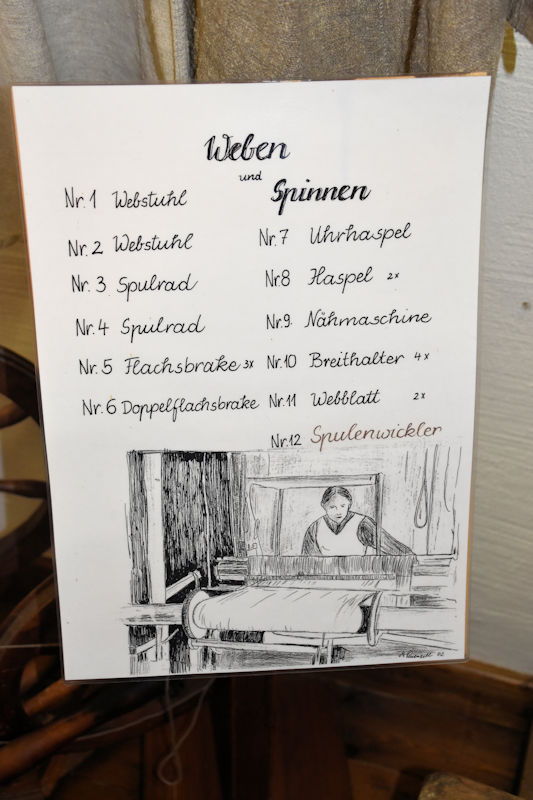 Weben
und
Spinnen
Nr. 1 Webstuhl
Nr. 2 Webstuhl
Nr. 3 Spulrad
Nr. 4 Spulrad
Nr. 5 Flachsbrake 3x
Nr. 6 Doppelflachsbrake
Nr. 7 Uhrhaspel
Nr. 8 Haspel 2x
Nr. 9. Nähmaschine
Nr. 10 Breithalter 4x
Nr. 11 Webblatt 2x
Nr. 12 Spulenwickler